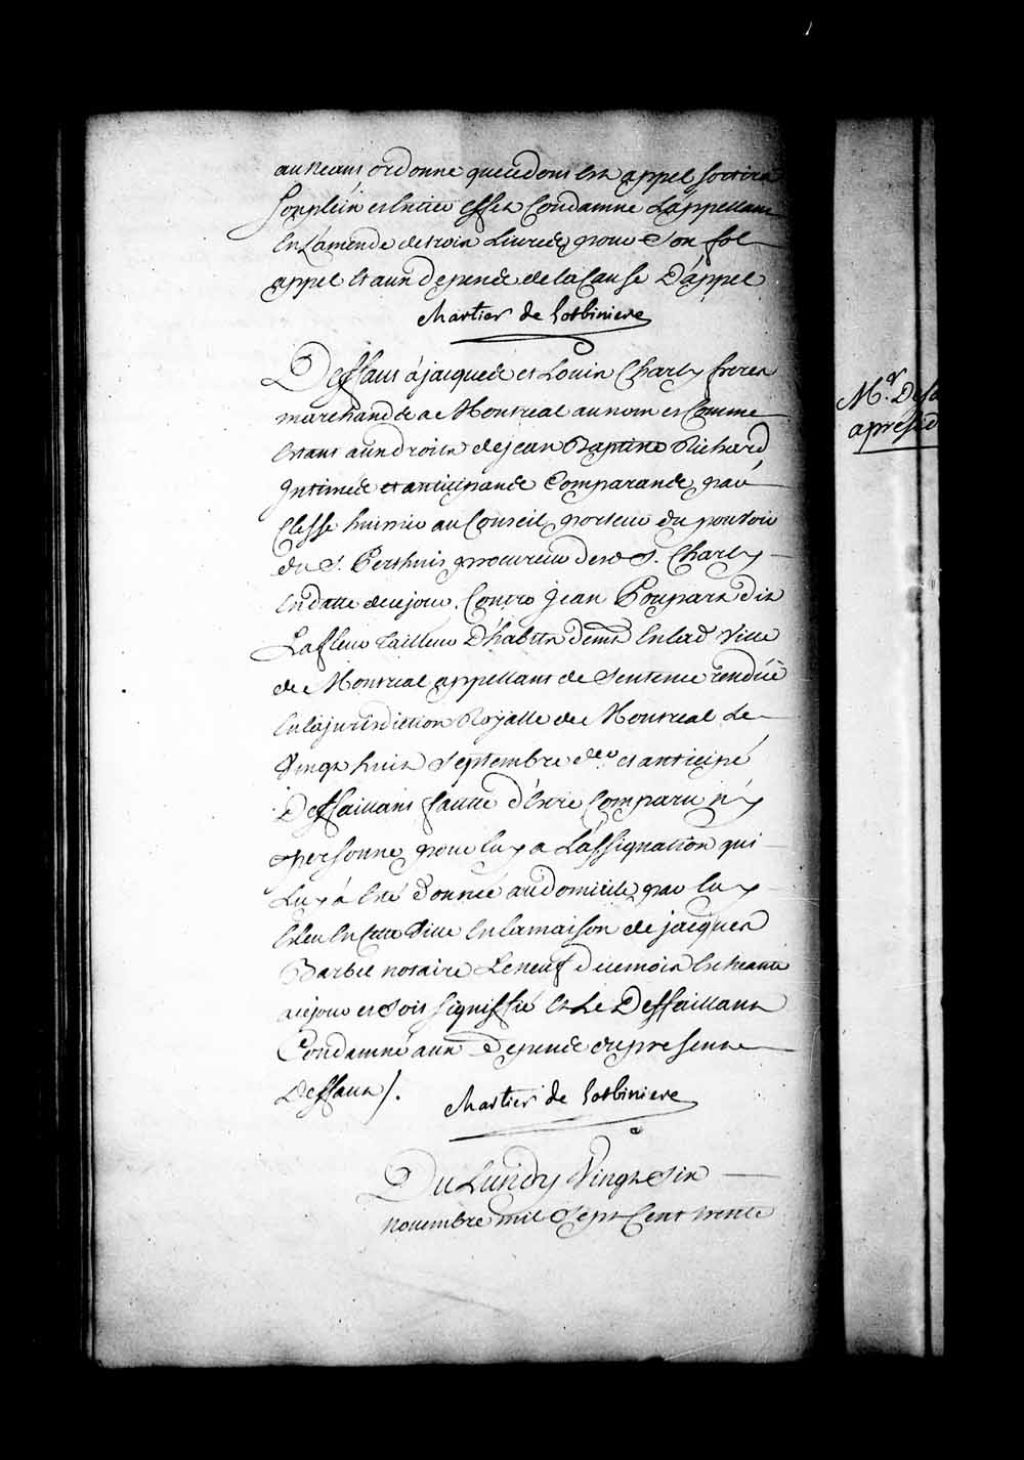 au neant ordonne que ce dont est appel sortira
son plein et entier effet Condamne L'appellant
En L'amende de trois Livres pour Son fol
appel Et aux Depens de la Cause D'appel
Chartier de Lotbiniere
Deffaut à jacques et Louis Charly freres
marchands a Montreal au nom et Comme
Estant aux droits de jean Baptiste Richard
Intimés et anticipands Comparands par
Clesse huissier au Conseil porteur du pouvoir
du S. Perthuis procureur desd. S. Charly
En datte de ce jour. Contre Jean Poupart dit
Lafleur Tailleur D'habits demt. En lad. Ville
de Montreal appellant de Sentence rendüe
En la jurisdiction Royalle de Montreal Le
Vingt huit Septembre der. et anticipé
Deffaillant faute d'Estre Comparu n'y
personne pour luy a L'assignation qui
Luy à Eté Donnée au domicile par luy
Esleu En Cette Ville En la maison de jacques
Barbel notaire Le neuf de ce mois Escheante
a ce jour et Soit signiffié Et Le Deffaillant
Condamné aux Depens du present
Deffaut /.
Chartier de Lotbiniere
Du Lundy Vingt Six
novembre mil Sept Cent trente
Mr.